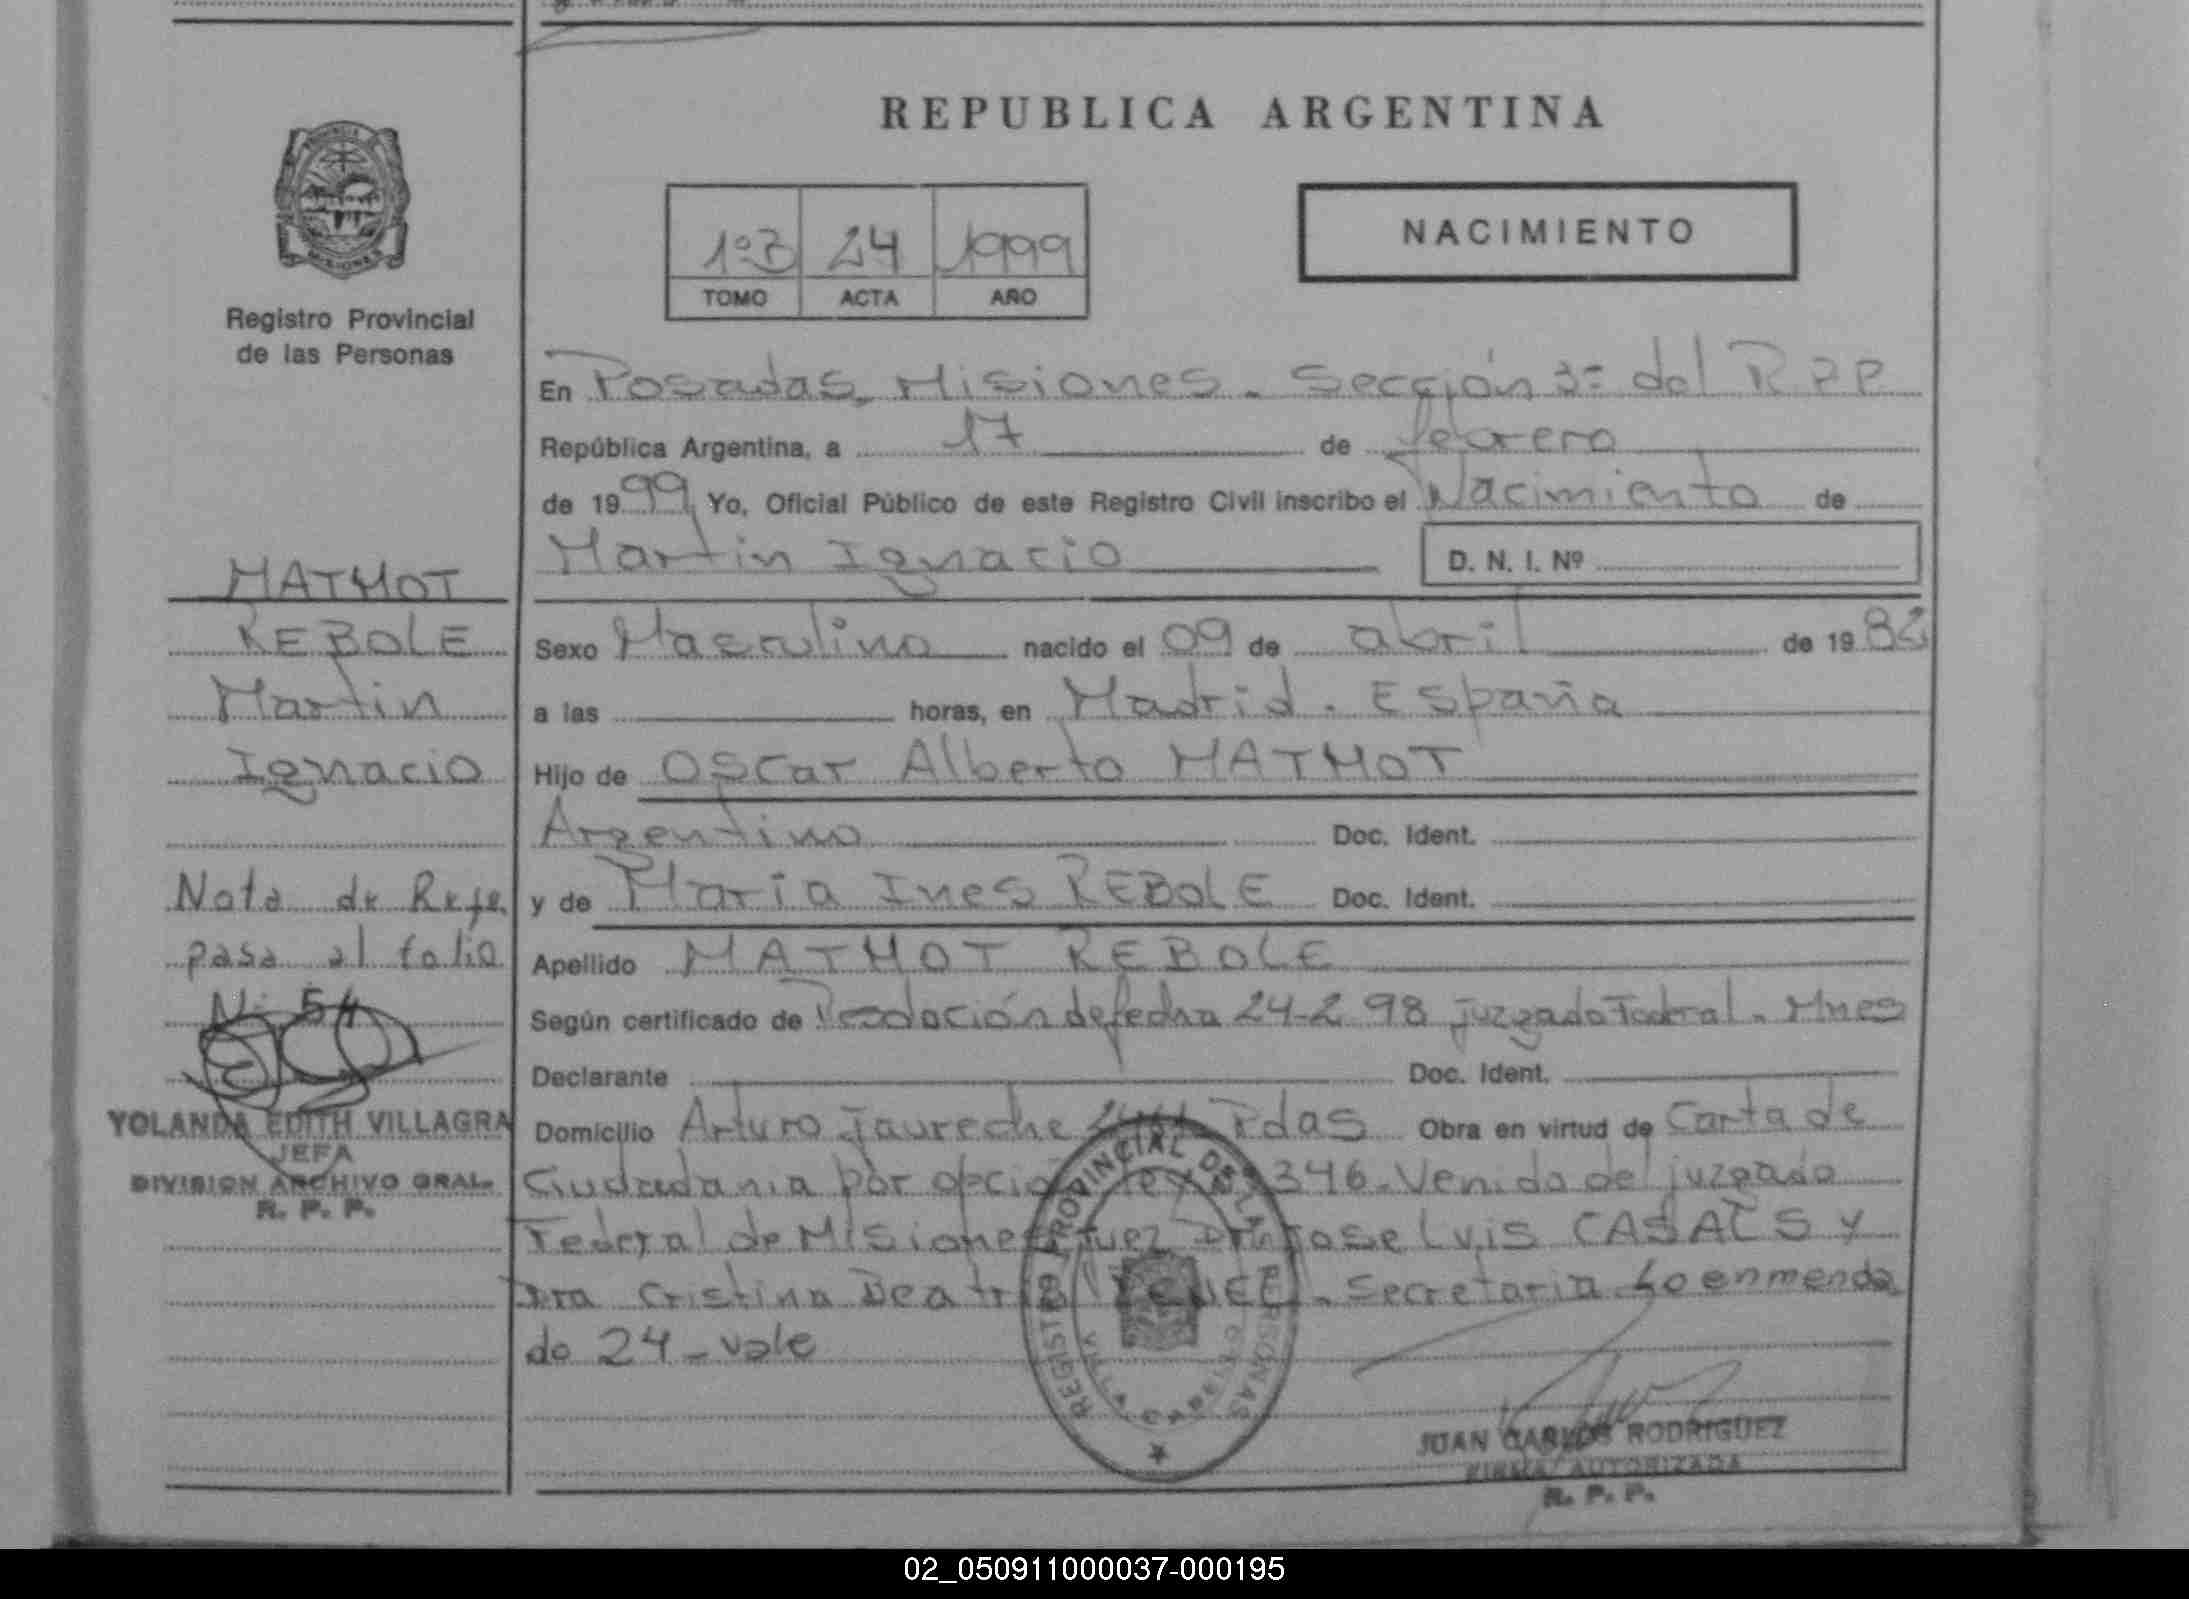 REPUBLICA ARGENTINA
PROVINCIA
MISIONES
Registro Provincial
de las Personas
1º B 24 1999
TOMO ACTA AÑO
NACIMIENTO
En Posadas, Misiones - Sección 3º del R P P
República Argentina, a 17 de febrero
de 1999 Yo, Oficial Público de este Registro Civil inscribo el Nacimiento de
Martin Ignacio D. N. I. Nº
MATMOT
REBOLE
Martin
Ignacio
Sexo Masculino nacido el 09 de abril de 1982
a las horas, en Madrid - España
Hijo de Oscar Alberto MATMOT
Argentino Doc. Ident.
y de Maria Ines REBOLE Doc. Ident.
Apellido MATMOT REBOLE
Según certificado de Resolución de fecha 24-2 98 juzgado Federal - Mnes
Declarante Doc. Ident.
Domicilio Arturo Jaureche Pdas Obra en virtud de Carta de
Ciudadania por opción 346 - Venida del juzgado
Federal de Misiones Juez Dr. Jose Luis CASALS y
Dra Cristina Beatriz - Secretaria Lo enmenda
do 24 - vale
Nota de Refe.
pasa al folio
Nº 54
YOLANDA EDITH VILLAGRA
JEFA
DIVISION ARCHIVO GRAL.
R. P. P.
REGISTRO PROVINCIAL DE LAS PERSONAS
JUAN CARLOS RODRIGUEZ
FIRMA AUTORIZADA
R. P. P.
02_050911000037-000195